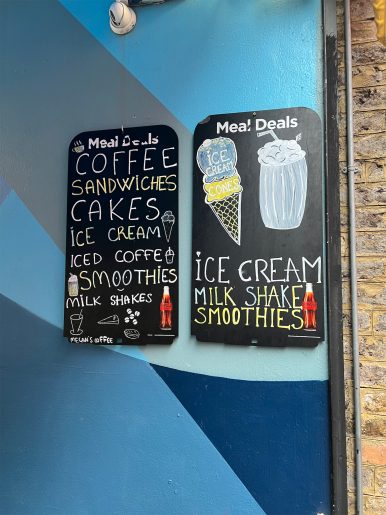 Meal Deals
COFFEE
SANDWICHES
CAKES
ICE CREAM
ICED COFFE
SMOOTHIES
MILK SHAKES
Meal Deals
ICE
CREAM
CONES
ICE CREAM
MILK SHAKE
SMOOTHIES